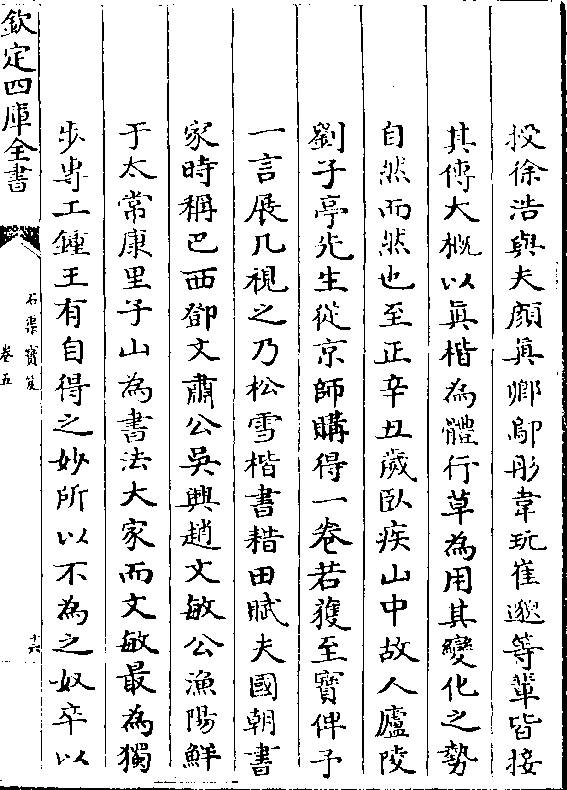 授徐浩與夫顔真卿鄔彤韋玩崔邈等輩皆接
其傳大概以真楷為體行草為用其變化之勢
自然而然也至正辛丑歲臥疾山中故人廬陵
劉子亭先生從京師購得一卷若獲至寶俾予
一言展几視之乃松雪楷書耤田賦夫國朝書
家時稱巴西鄧文肅公吳興趙文敏公漁陽鮮
于太常康里子山為書法大家而文敏最為獨
步專工鍾王有自得之妙所以不為之奴卒以
欽定四庫全書
石渠寶笈
卷五
十六